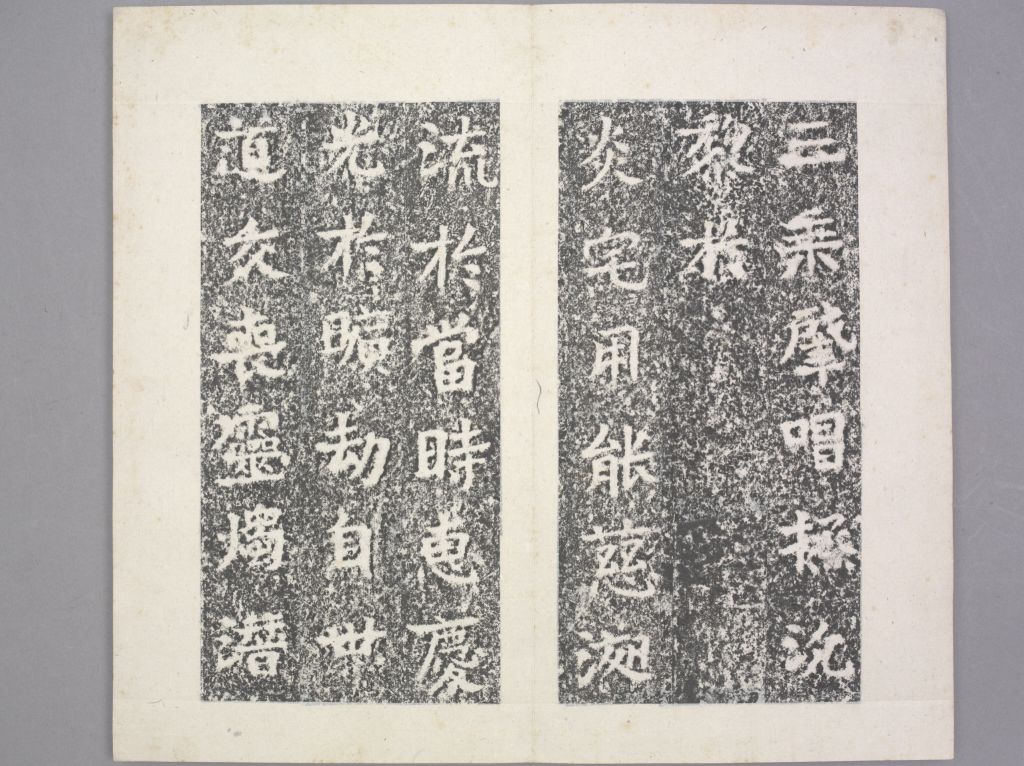 三乘肇唱拯沉
黎於
炎宅用能慈液
流於當時惠慶
光於曠劫自世
道交喪靈燭潛